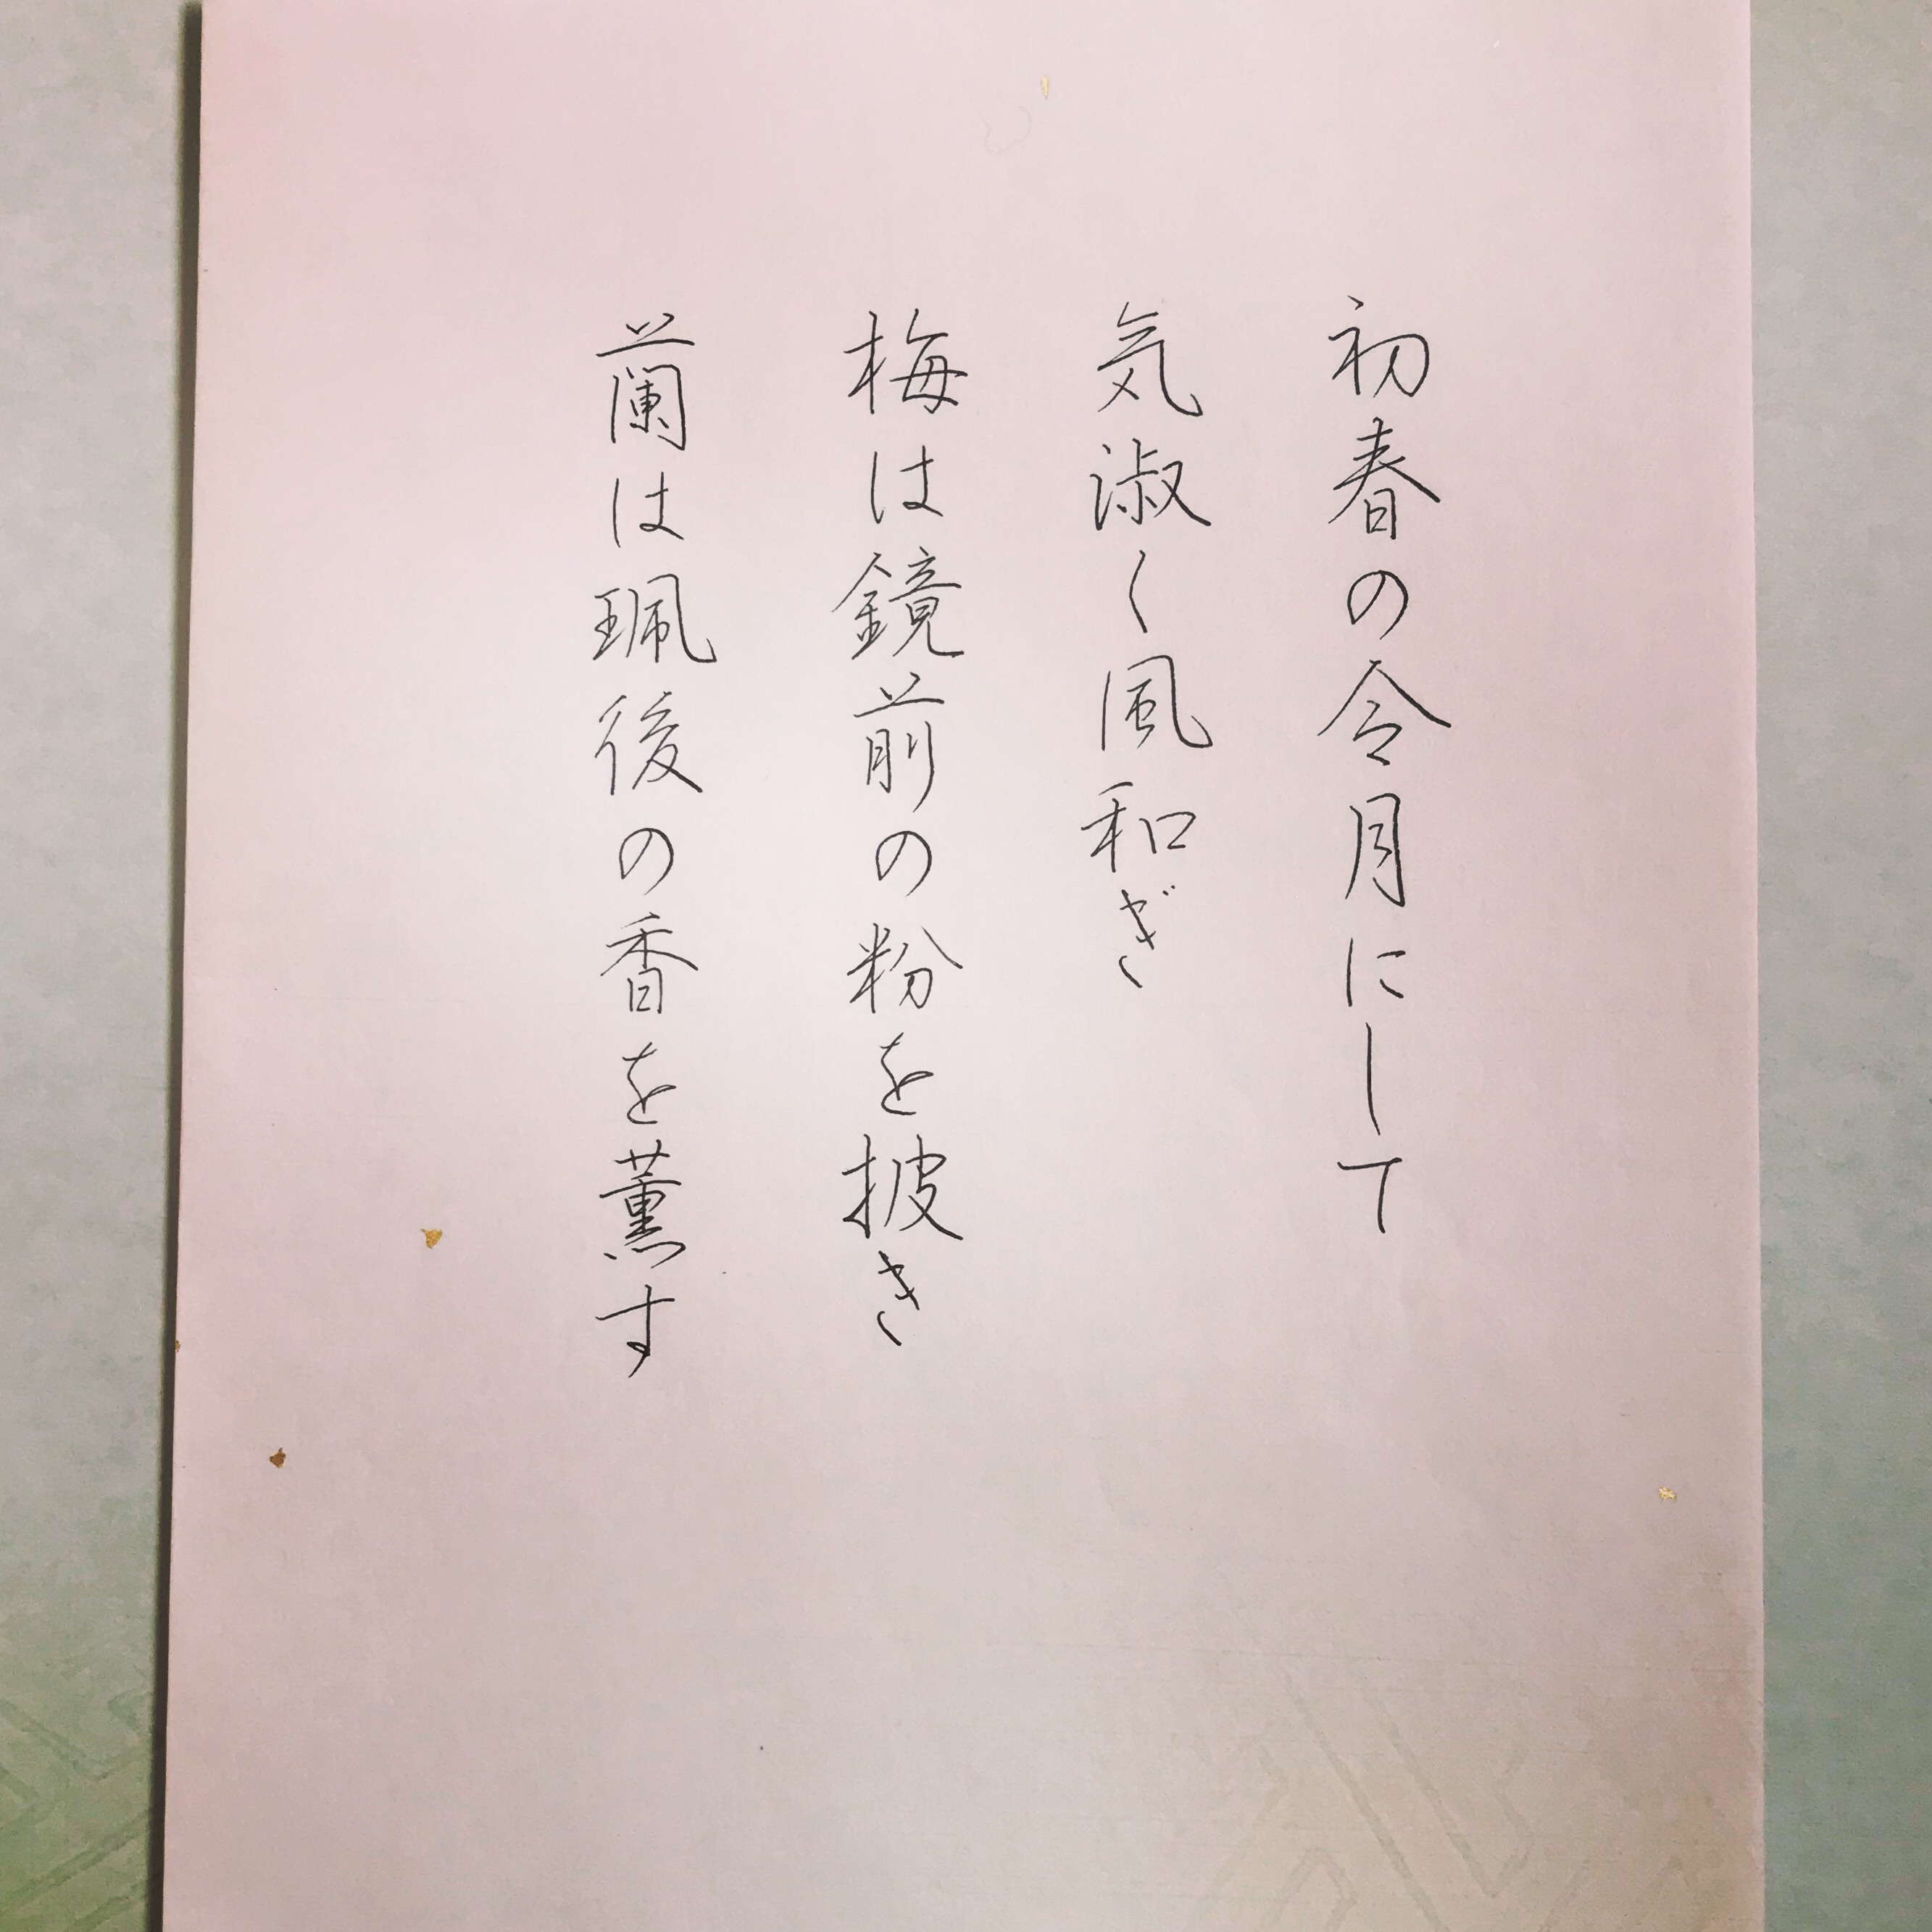 初春の令月にして
気淑く風和ぎ
梅は鏡前の粉を披き
蘭は珮後の香を薫す